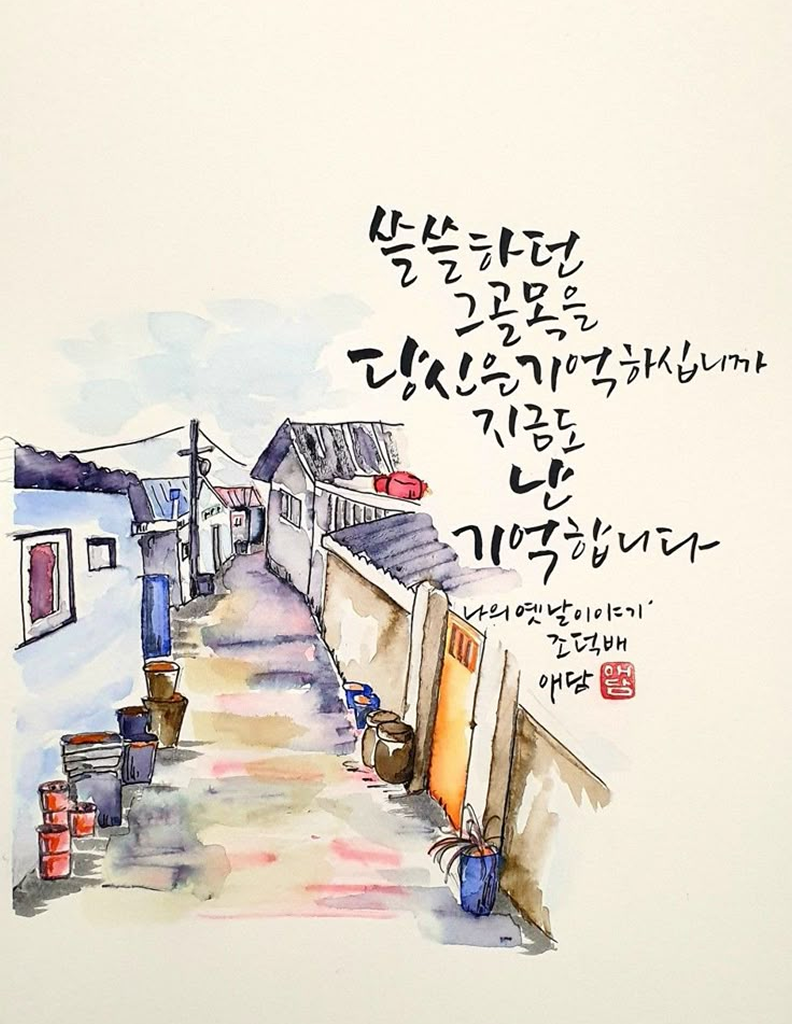 쓸쓸하던
그골목을
당신은기억하십니까
지금도
난
기억합니다
나의옛날이야기'
조덕배
애담
애담